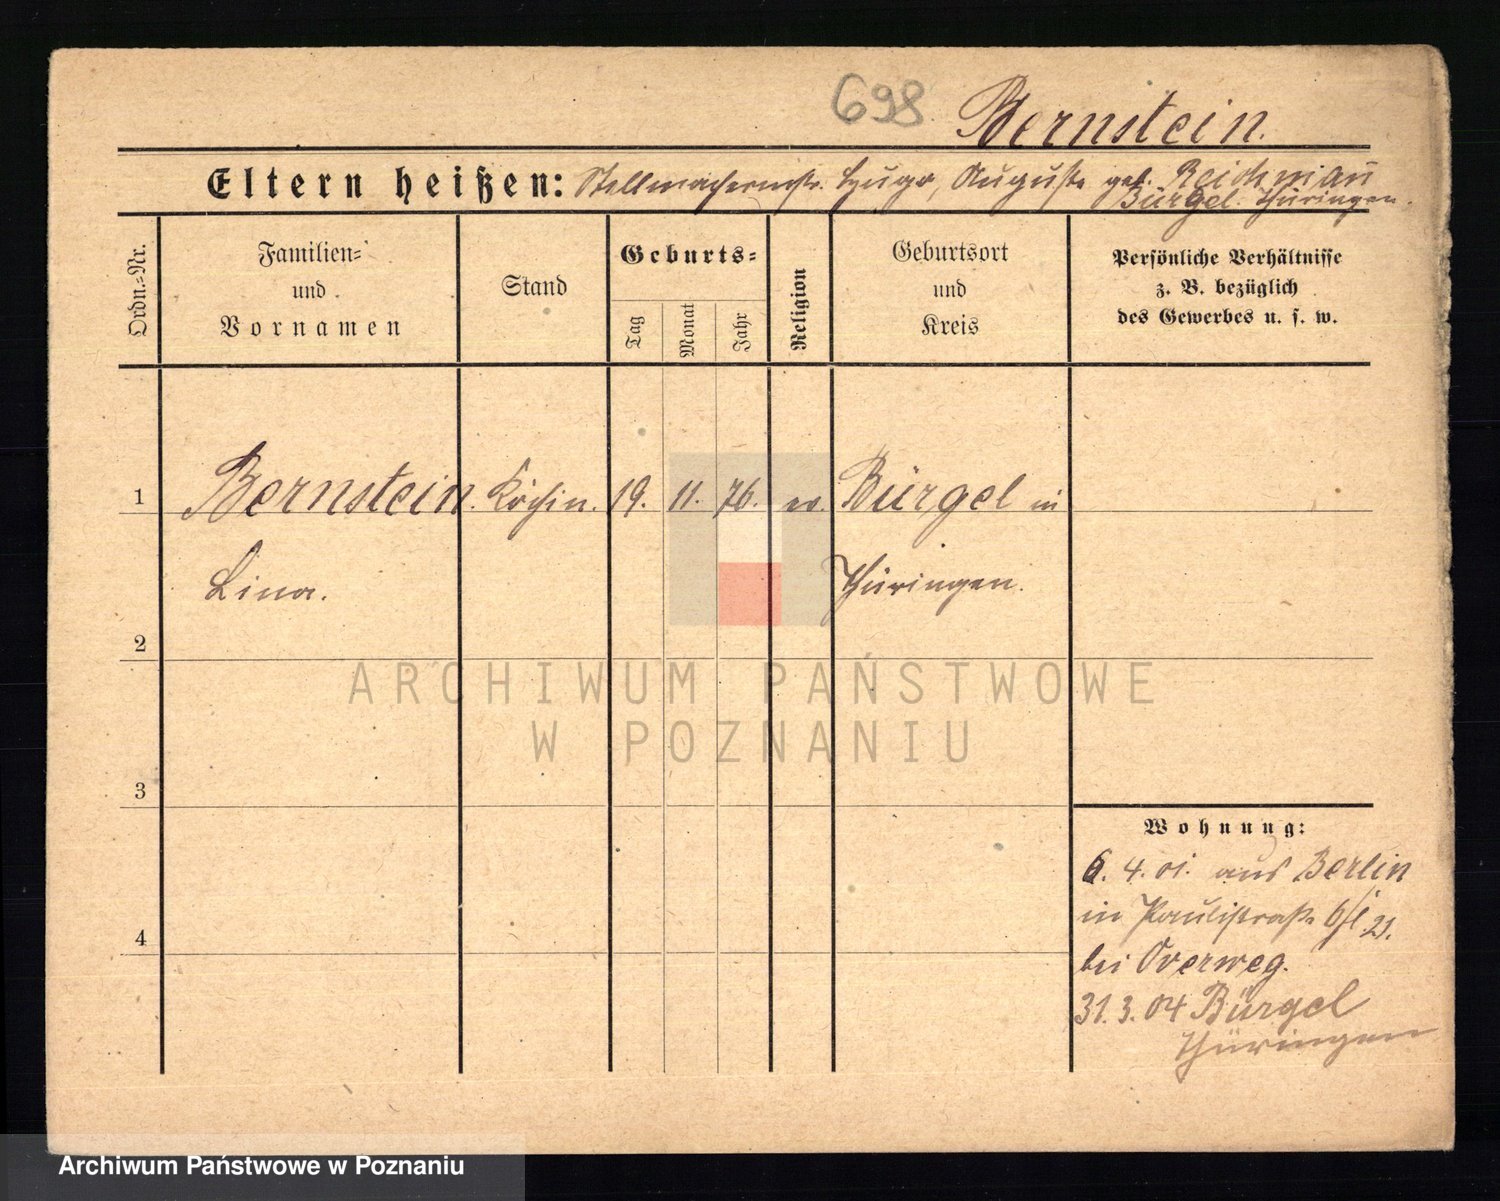 698 Bernstein.
Eltern heißen: Stellmachermstr. Hugo, Auguste geb. Reichmau
Bürgel. Thüringen.
Ordn.-Nr.
Familien-
und
Vornamen
Stand
Geburts-
Tag
Monat
Jahr
Religion
Geburtsort
und
Kreis
Persönliche Verhältnisse
z. B. bezüglich
des Gewerbes u. s. w.
1 Bernstein. Köchin. 19. 11. 76. ev. Bürgel in
Lina. Thüringen.
2
ARCHIWUM PAŃSTWOWE
W POZNANIU
3
Wohnung:
6. 4. 01. aus Berlin
in Paulistraße 6/I 21.
4
bei Overweg.
31. 3. 04 Bürgel
Thüringen
Archiwum Państwowe w Poznaniu